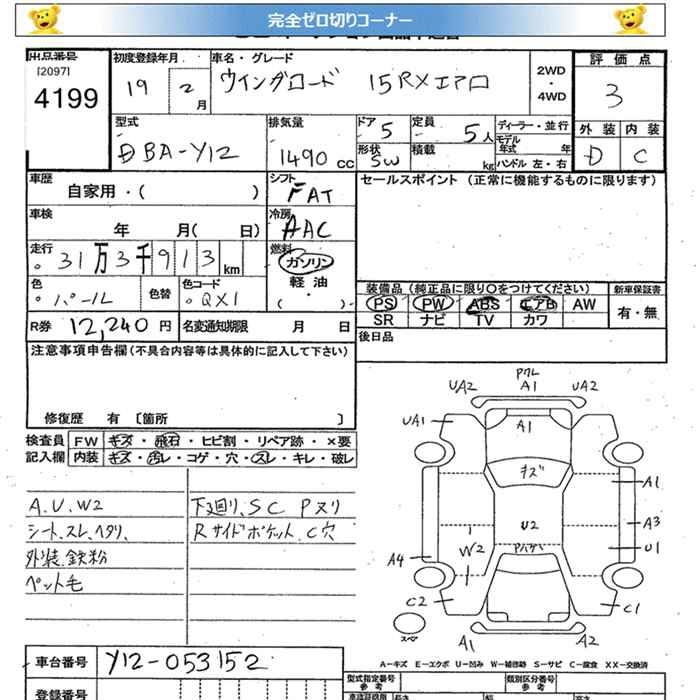 完全ゼロ切りコーナー
出品番号
[2097]
4199
初度登録年月
19
2
月
車名・グレード
ウイングロード 15RXエアロ
2WD
・
4WD
評価点
3
外装 内装
D C
型式
DBA-Y12
排気量
1490 cc
ドア 5
形状 SW
定員 5人
積載 kg
ディーラー・並行
モデル年式 年
ハンドル 左・右
車歴
自家用・( )
シフト
FAT
セールスポイント (正常に機能するものに限ります)
車検
年 月( 日)
冷房
AAC
走行
31万3千913 km
燃料
ガソリン
軽油
・( )
色
パール
色替
色コード
QX1
装備品(純正品に限り〇をつけてください)
PS PW ABS エアB AW
SR ナビ TV カワ
新車保証書
有・無
R券 12,240 円
名変通知期限 月 日
後日品
注意事項申告欄(不具合内容等は具体的に記入して下さい)
修復歴 有 〔箇所 〕
検査員
記入欄
FW キズ・飛石・ヒビ割・リペア跡・×要
内装 キズ・汚レ・コゲ・穴・スレ・キレ・破レ
A.U.W2
シート.スレ.ヘタリ.
外装.鉄粉
ペット毛
下廻り.SC Pヌリ
Rサイドポケット.C穴
UA2
PワレA1
UA2
UA1
A1
キズ
A1
A3
U2
U1
W2
Pハゲ
A4
C2
C1
スペア
A1
A2
A－キズ E－エクボ U－凹み W－補修跡 S－サビ C－腐食 XX－交換済
車台番号 Y12-053152
登録番号
型式指定番号
参考
類別区分番号
参考
長さ
幅
高さ